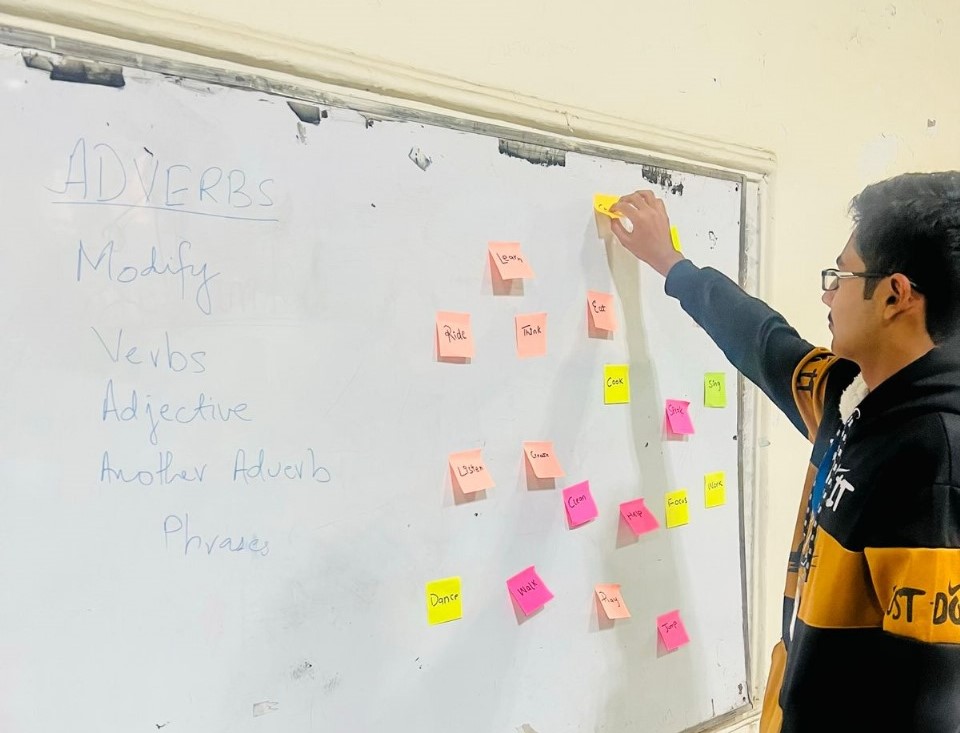 ADVERBS
Modify
Verbs
Adjective
Another Adverb
Phrases
Learn
Ride
Think
Eat
Cook
Sing
Listen
Clean
Help
Focus
Work
Dance
Walk
Play
Jump
IT
IT
UST DO